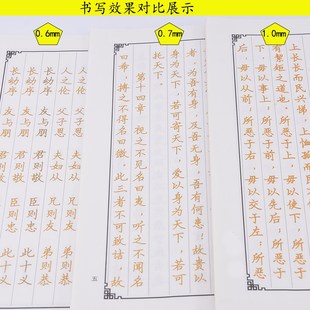 书写效果对比展示
0.6mm
0.7mm
1.0mm
人之伦 父子恩 夫妇从 兄则友 弟则恭
长幼序 友与朋 君则敬 臣则忠 此十义
长幼序 友与朋 君则敬 臣则忠 此十义
有身，及吾无身，吾有何患！故贵以
身为天下，若可寄天下；爱以身为天下，若可
托天下。
第十四章 视之不见名曰夷，听之不闻名
曰希，搏之不得名曰微。此三者不可致诘，故
五
上长长而民兴悌，上恤孤而
有絜矩之道也。所恶于上，毋以使下，所恶于
下，毋以事上；所恶于前，毋以先后；所恶于
后，毋以从前；所恶于右，毋以交于左；所恶于